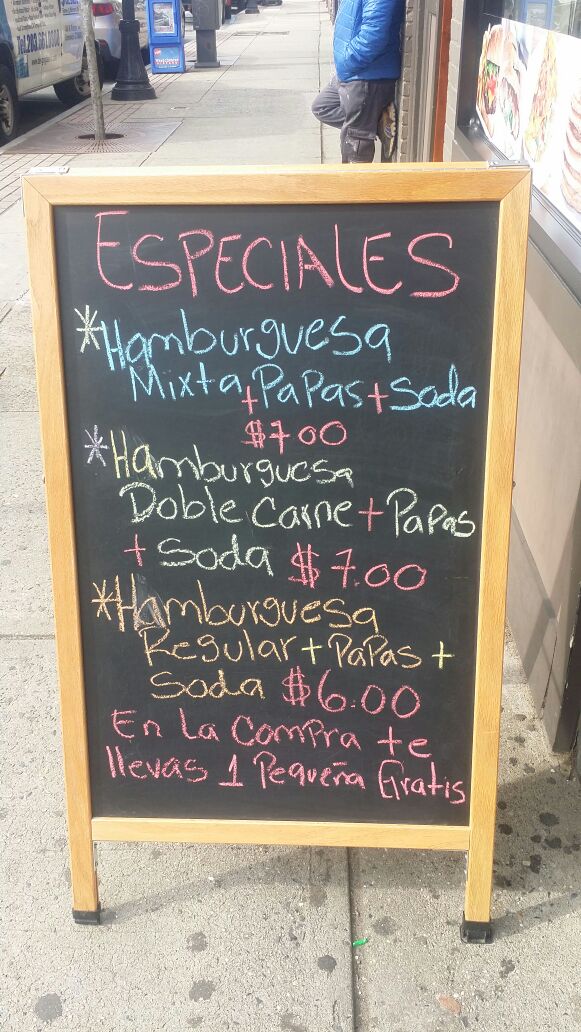 ESPECIALES
*Hamburguesa
Mixta + Papas + Soda
$7 00
*Hamburguesa
Doble Carne + Papas
+ Soda $7.00
*Hamburguesa
Regular + Papas +
Soda $6.00
En La Compra te
llevas 1 Pequeña Gratis